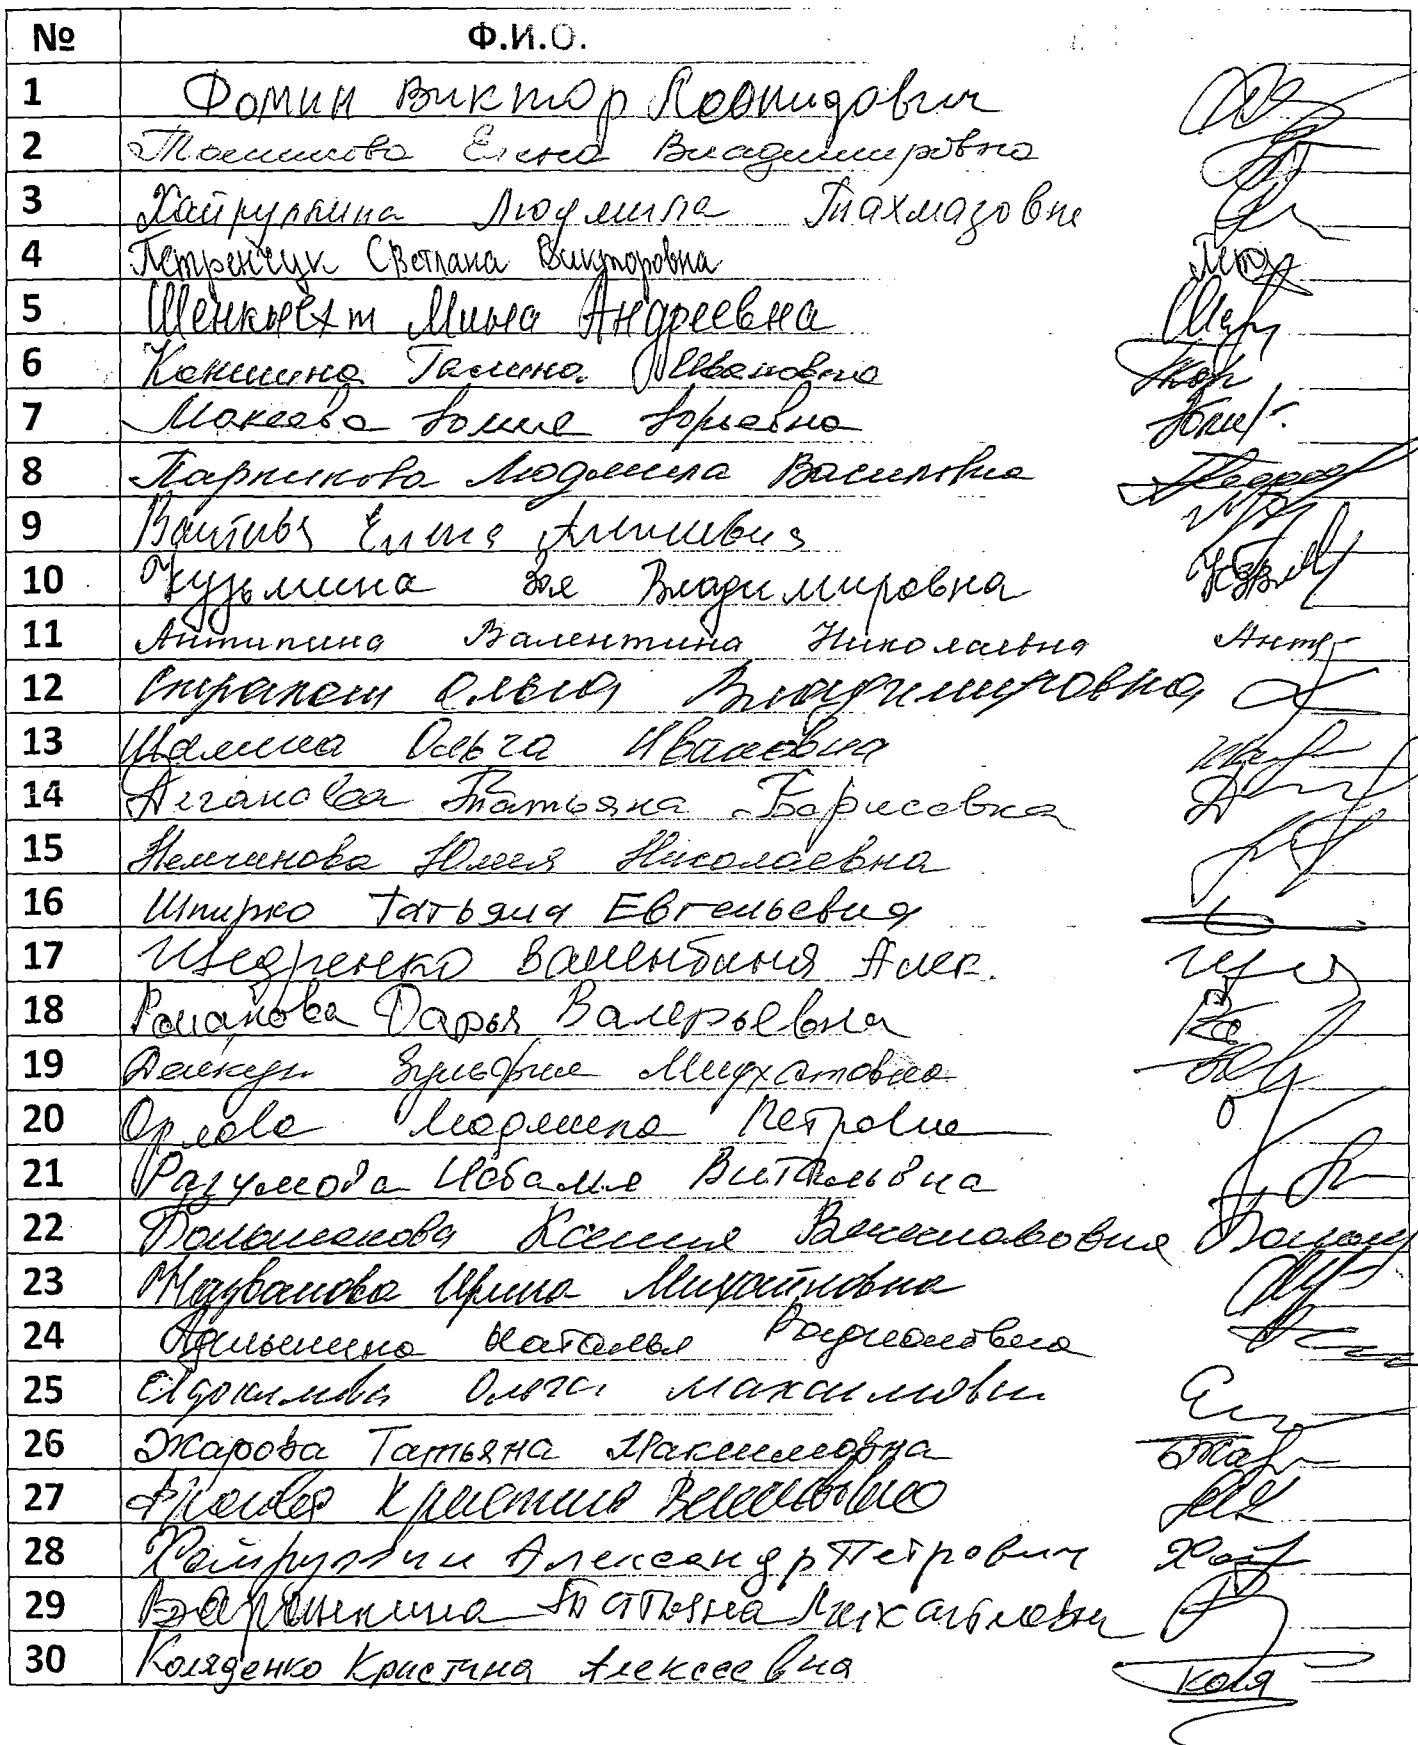 № Ф.И.О.
1 Фомин Виктор Леонидович
2 Елена Владимировна
3 Хайруллина Людмила Тахмазовна
4 Петренчук Светлана Викторовна
5 Шенкнехт Андреевна
6 Канишина Галина Ивановна
7 Макеева Юлия Юрьевна
8 Парникова Людмила Васильевна
9 Елена
10 Кузьмина Зоя Владимировна
11 Антипина Валентина Николаевна
12 Ольга Владимировна
13 Шалина Ольга Ивановна
14 Леганова Татьяна Борисовна
15 Немчинова Юлия Николаевна
16 Шпирко Татьяна Евгеньевна
17 Щедренко Валентина Алек.
18 Романова Дарья Валерьевна
19 Зульфия Мидхатовна
20 Орлова Людмила Петровна
21 Разумова Наталья Витальевна
22 Большакова Ксения Вячеславовна
23 Ирина Михайловна
24 Наталья Родионовна
25 Евдокимова Ольга Максимовна
26 Жарова Татьяна Максимовна
27 Кристина
28 Хайруллин Александр Петрович
29 Варанкина Татьяна Михайловна
30 Коляденко Кристина Алексеевна